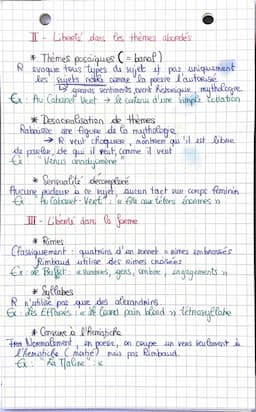 II - Liberté dans les thèmes abordés
* Thèmes prosaïques (= banal)
R évoque tous types de sujet et pas uniquement
les sujets nobles comme la poésie l'autorise
↳ grands sentiments, évent historique, mythologie
Ex : Au Cabaret Vert → le contenu d'une simple
* Désacralisation de thèmes
Rabaisse une figure de la mythologie
→ R veut choquer, montrer qu'il est libre
de parler, de qui il veut, comme il veut
Ex : "Vénus anadyomène"
* Sensualité décomplexé
Aucune pudeur à ce sujet, aucun tact sur corps féminin
Ex : Au Cabaret-Vert : « fille aux tétons énormes »
III - Liberté dans la forme
* Rimes
Classiquement : quatrains d'un sonnet = rimes embrassées
Rimbaud utilise des rimes croisées
Ex : Le Buffet :
* Syllabes
R n'utilise pas que des alexandrins
Ex : Les Effarés :
* Césure à l'hémistiche
Normalement, en poésie, on coupe un vers seulement à
l'hémistiche (moitié) mais pas Rimbaud.
Ex : "La Maline" : «